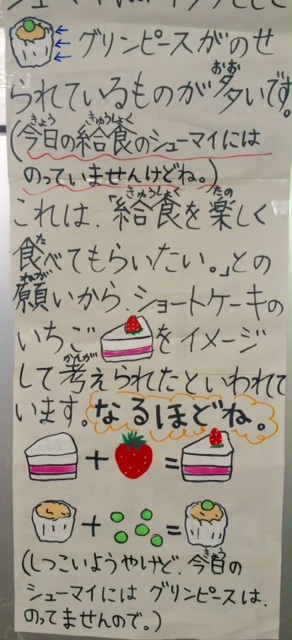 グリンピースがのせ
られているものが多いです。
(今日の給食のシューマイには
のっていませんけどね。)
これは、「給食を楽しく
食べてもらいたい。」との
願いから、ショートケーキの
いちごをイメージ
して考えられたといわれて
います。なるほどね。
+ =
+ =
(しつこいようやけど、今日の
シューマイには グリンピースは、
のってませんので。)